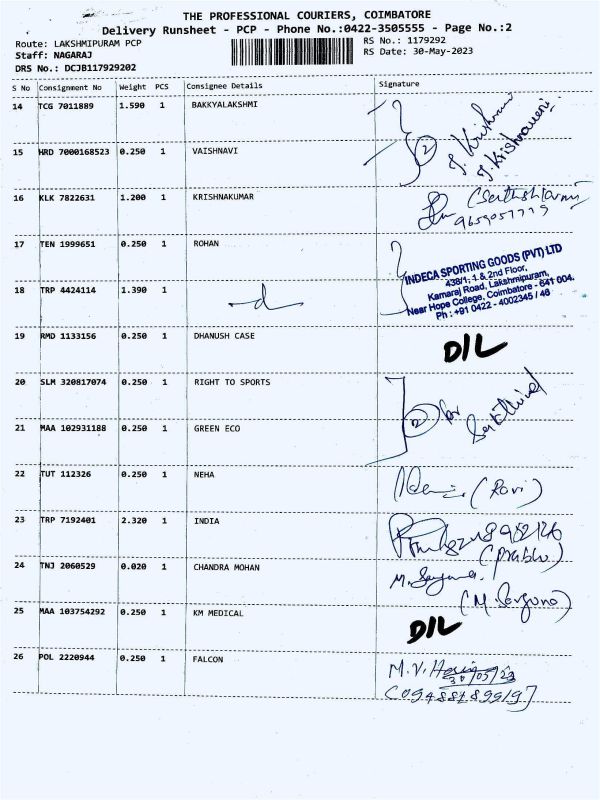 THE PROFESSIONAL COURIERS, COIMBATORE
Delivery Runsheet - PCP - Phone No.:0422-3505555 - Page No.:2
Route: LAKSHMIPURAM PCP RS No.: 1179292
Staff: NAGARAJ RS Date: 30-May-2023
DRS No.: DCJB117929202
S No Consignment No Weight PCS Consignee Details Signature
14 TCG 7011889 1.590 1 BAKKYALAKSHMI
J. Krishnaveni
15 HRD 7000168523 0.250 1 VAISHNAVI 2
16 KLK 7822631 1.200 1 KRISHNAKUMAR
17 TEN 1999651 0.250 1 ROHAN
INDECA SPORTING GOODS (PVT) LTD
438/1, 1 & 2nd Floor,
Kamaraj Road, Lakshmipuram,
Near Hope College, Coimbatore - 641 004.
Ph : +91 0422 - 4002345 / 46
18 TRP 4424114 1.390 1
19 RMD 1133156 0.250 1 DHANUSH CASE D/L
20 SLM 320817074 0.250 1 RIGHT TO SPORTS
21 MAA 102931188 0.250 1 GREEN ECO 2 for
22 TUT 112326 0.250 1 NEHA (Ravi)
23 TRP 7192401 2.320 1 INDIA
(Prabhu)
24 TNJ 2060529 0.020 1 CHANDRA MOHAN
25 MAA 103754292 0.250 1 KM MEDICAL D/L
26 POL 2220944 0.250 1 FALCON M.V.
30/05/23